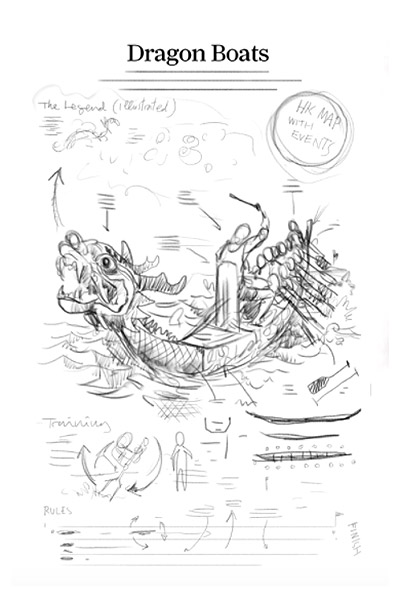 Dragon Boats
The Legend (illustrated)
HK MAP
WITH
EVENTS
Training
RULES
FINISH